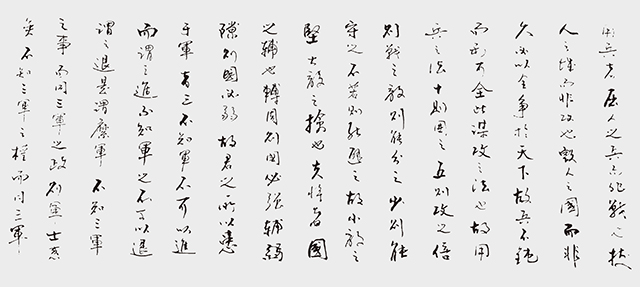 用兵者屈人之兵而非戰也拔
人之城而非攻也毀人之國而非
久必以全爭於天下故兵不鈍
而利可全此謀攻之法也故用
兵之法十則圍之五則攻之倍
則戰之敵則能分之少則能
守之不若則能避之故小敵之
堅大敵之擒也夫將者國
之輔也輔周則國必強輔
隙則國必弱故君之所以患
于軍者三不知軍不可以進
而謂之進不知軍之不可以退
謂之退是謂縻軍 不知三軍
之事而同三軍之政則軍士惑
矣不知三軍之權而同三軍